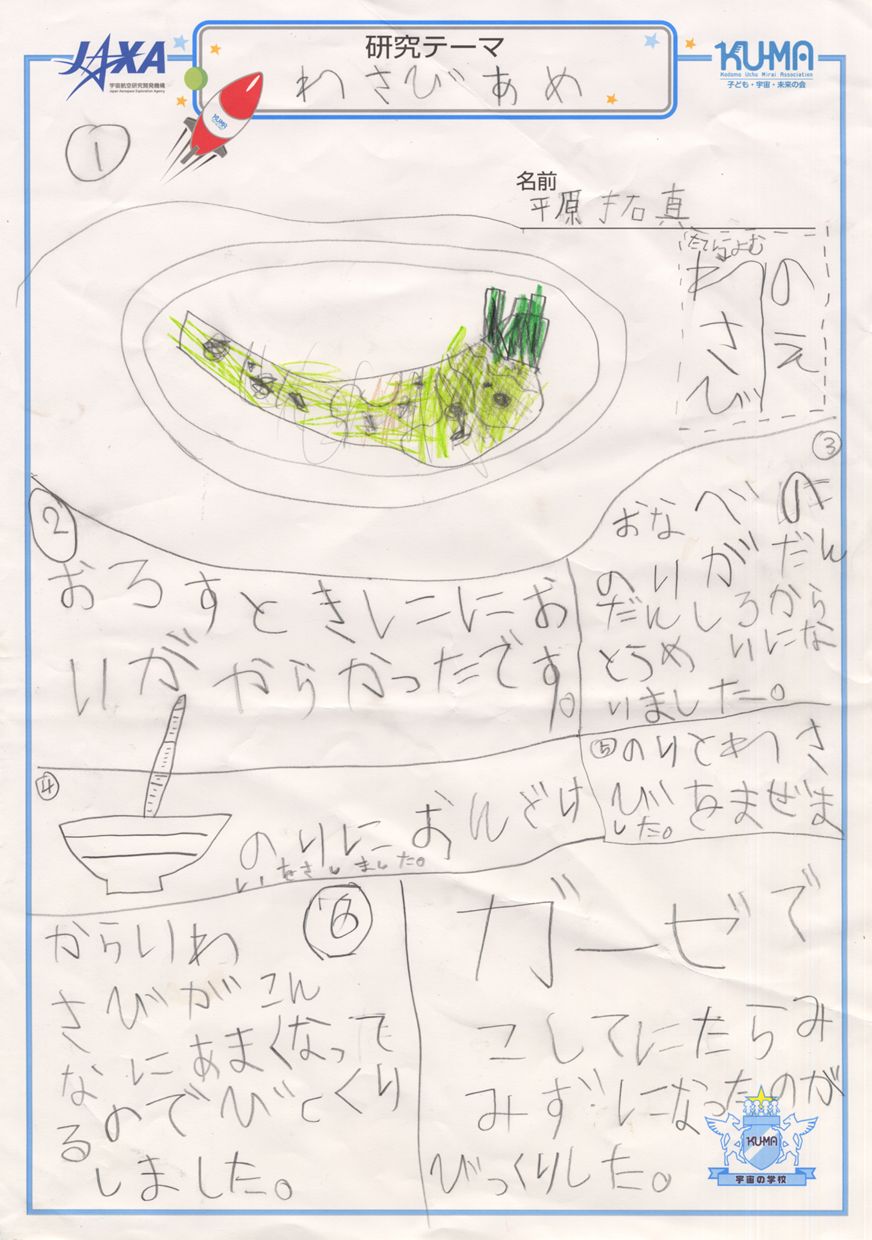 JAXA
宇宙航空研究開発機構
Japan Aerospace Exploration Agency
研究テーマ
わさびあめ
KU-MA
Kodomo Uchu Mirai Association
子ども・宇宙・未来の会
KU-MA
①
名前
平原拓真
たてによむ
わさび
のえ
②
おろすときしににお
いがからかったです。
③
おなべのきん
のりがだん
だんしろから
とうめいにな
いました。
④
のりにおんどけ
いをさしました。
⑤のりとわさ
びをまぜま
した。
⑥
からいわ
さびがこん
なにあまくなって
るのでびっくり
しました。
ガーゼで
こしてにたらみ
みずになったのが
びっくりした。
KU-MA
宇宙の学校